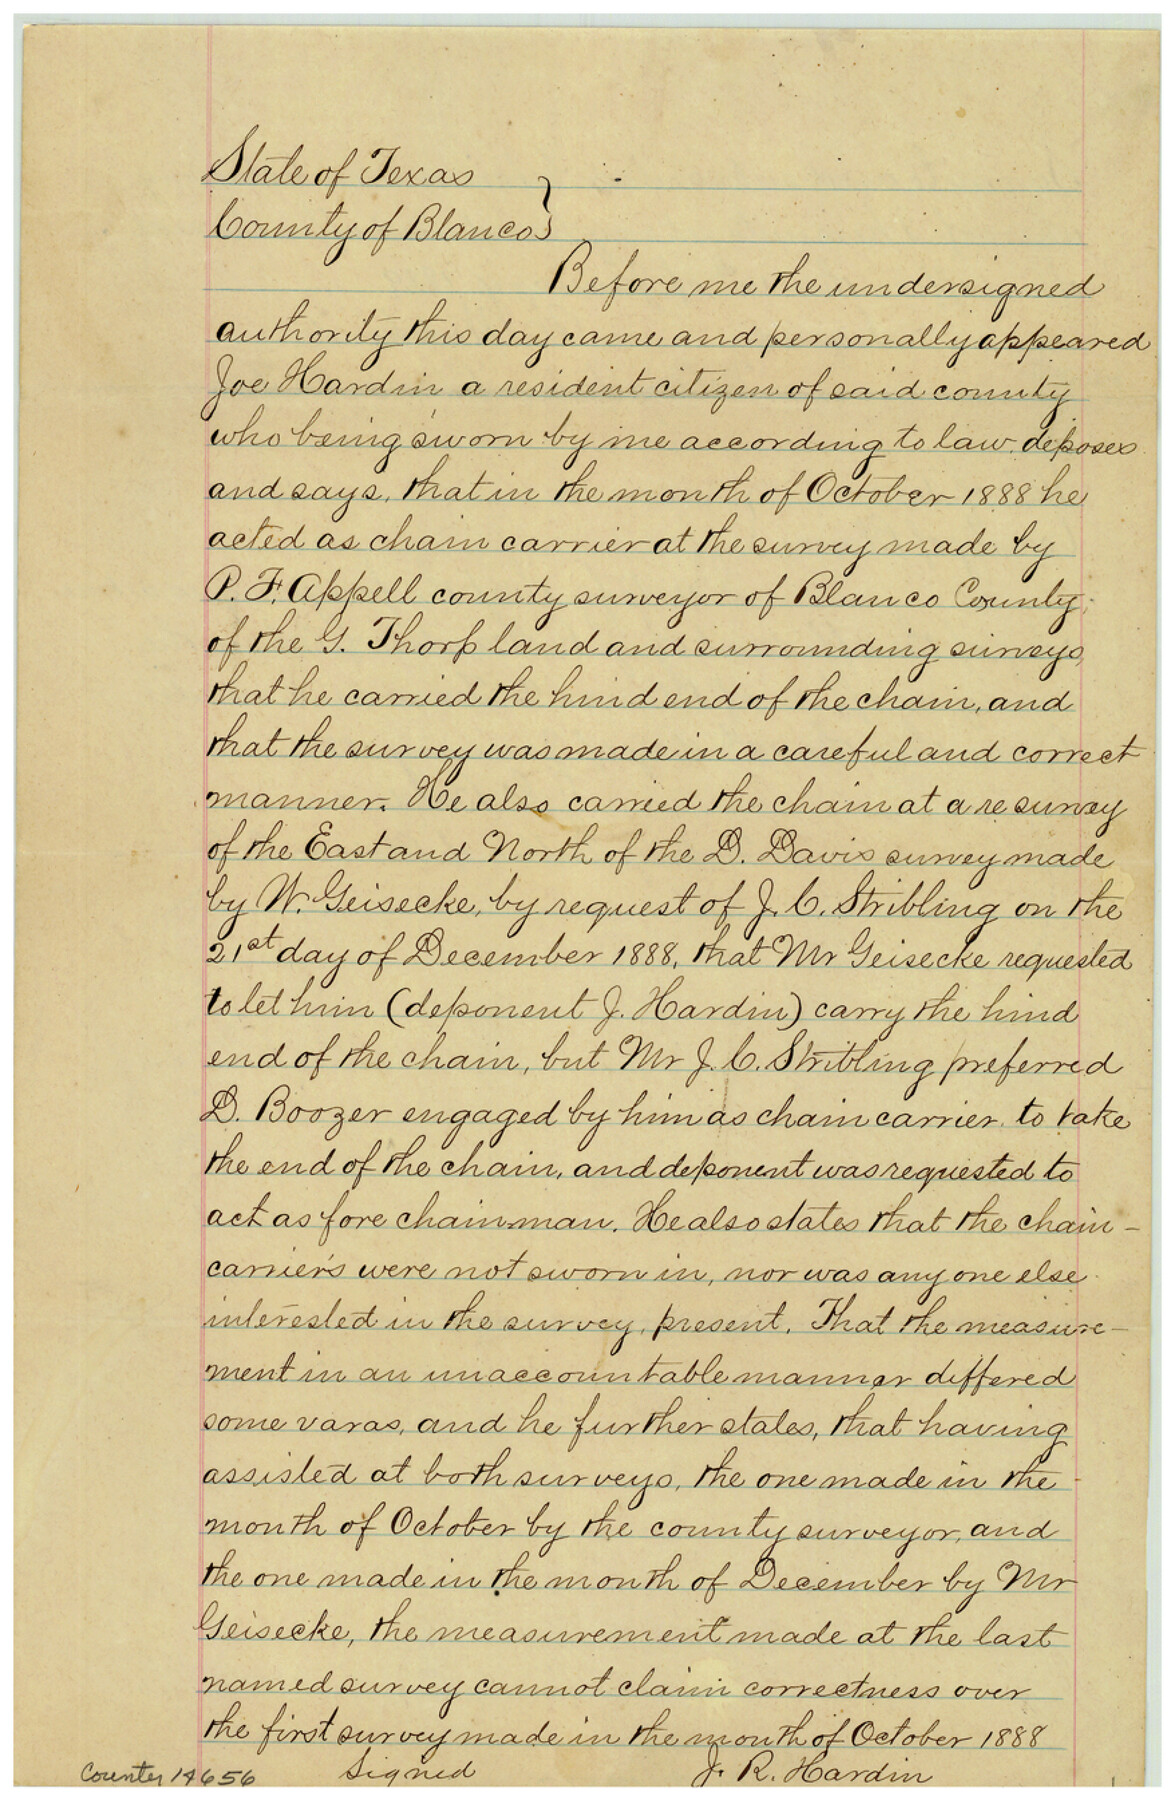 State of Texas }
County of Blanco }
Before me the undersigned
authority this day came and personally appeared
Joe Hardin a resident citizen of said county
who being sworn by me according to law, deposes
and says, that in the month of October 1888 he
acted as chain carrier at the survey made by
P. F. Appell county surveyor of Blanco County,
of the G. Thorp land and surrounding surveys,
that he carried the hind end of the chain, and
that the survey was made in a careful and correct
manner. He also carried the chain at a resurvey
of the East and North of the D. Davis survey made
by W. Geisecke, by request of J. C. Stribling on the
21st day of December 1888, that Mr Geisecke requested
to let him (deponent J. Hardin) carry the hind
end of the chain, but Mr J. C. Stribling preferred
D. Boozer engaged by him as chain carrier, to take
the end of the chain, and deponent was requested to
act as fore chainman. He also states that the chain-
carriers were not sworn in, nor was any one else
interested in the survey, present. That the measure-
ment in an unaccountable manner differed
some varas, and he further states, that having
assisted at both surveys, the one made in the
month of October by the county surveyor, and
the one made in the month of December by Mr
Geisecke, the measurement made at the last
named survey cannot claim correctness over
the first survey made in the month of October 1888
Signed J. R. Hardin
Counter 14656